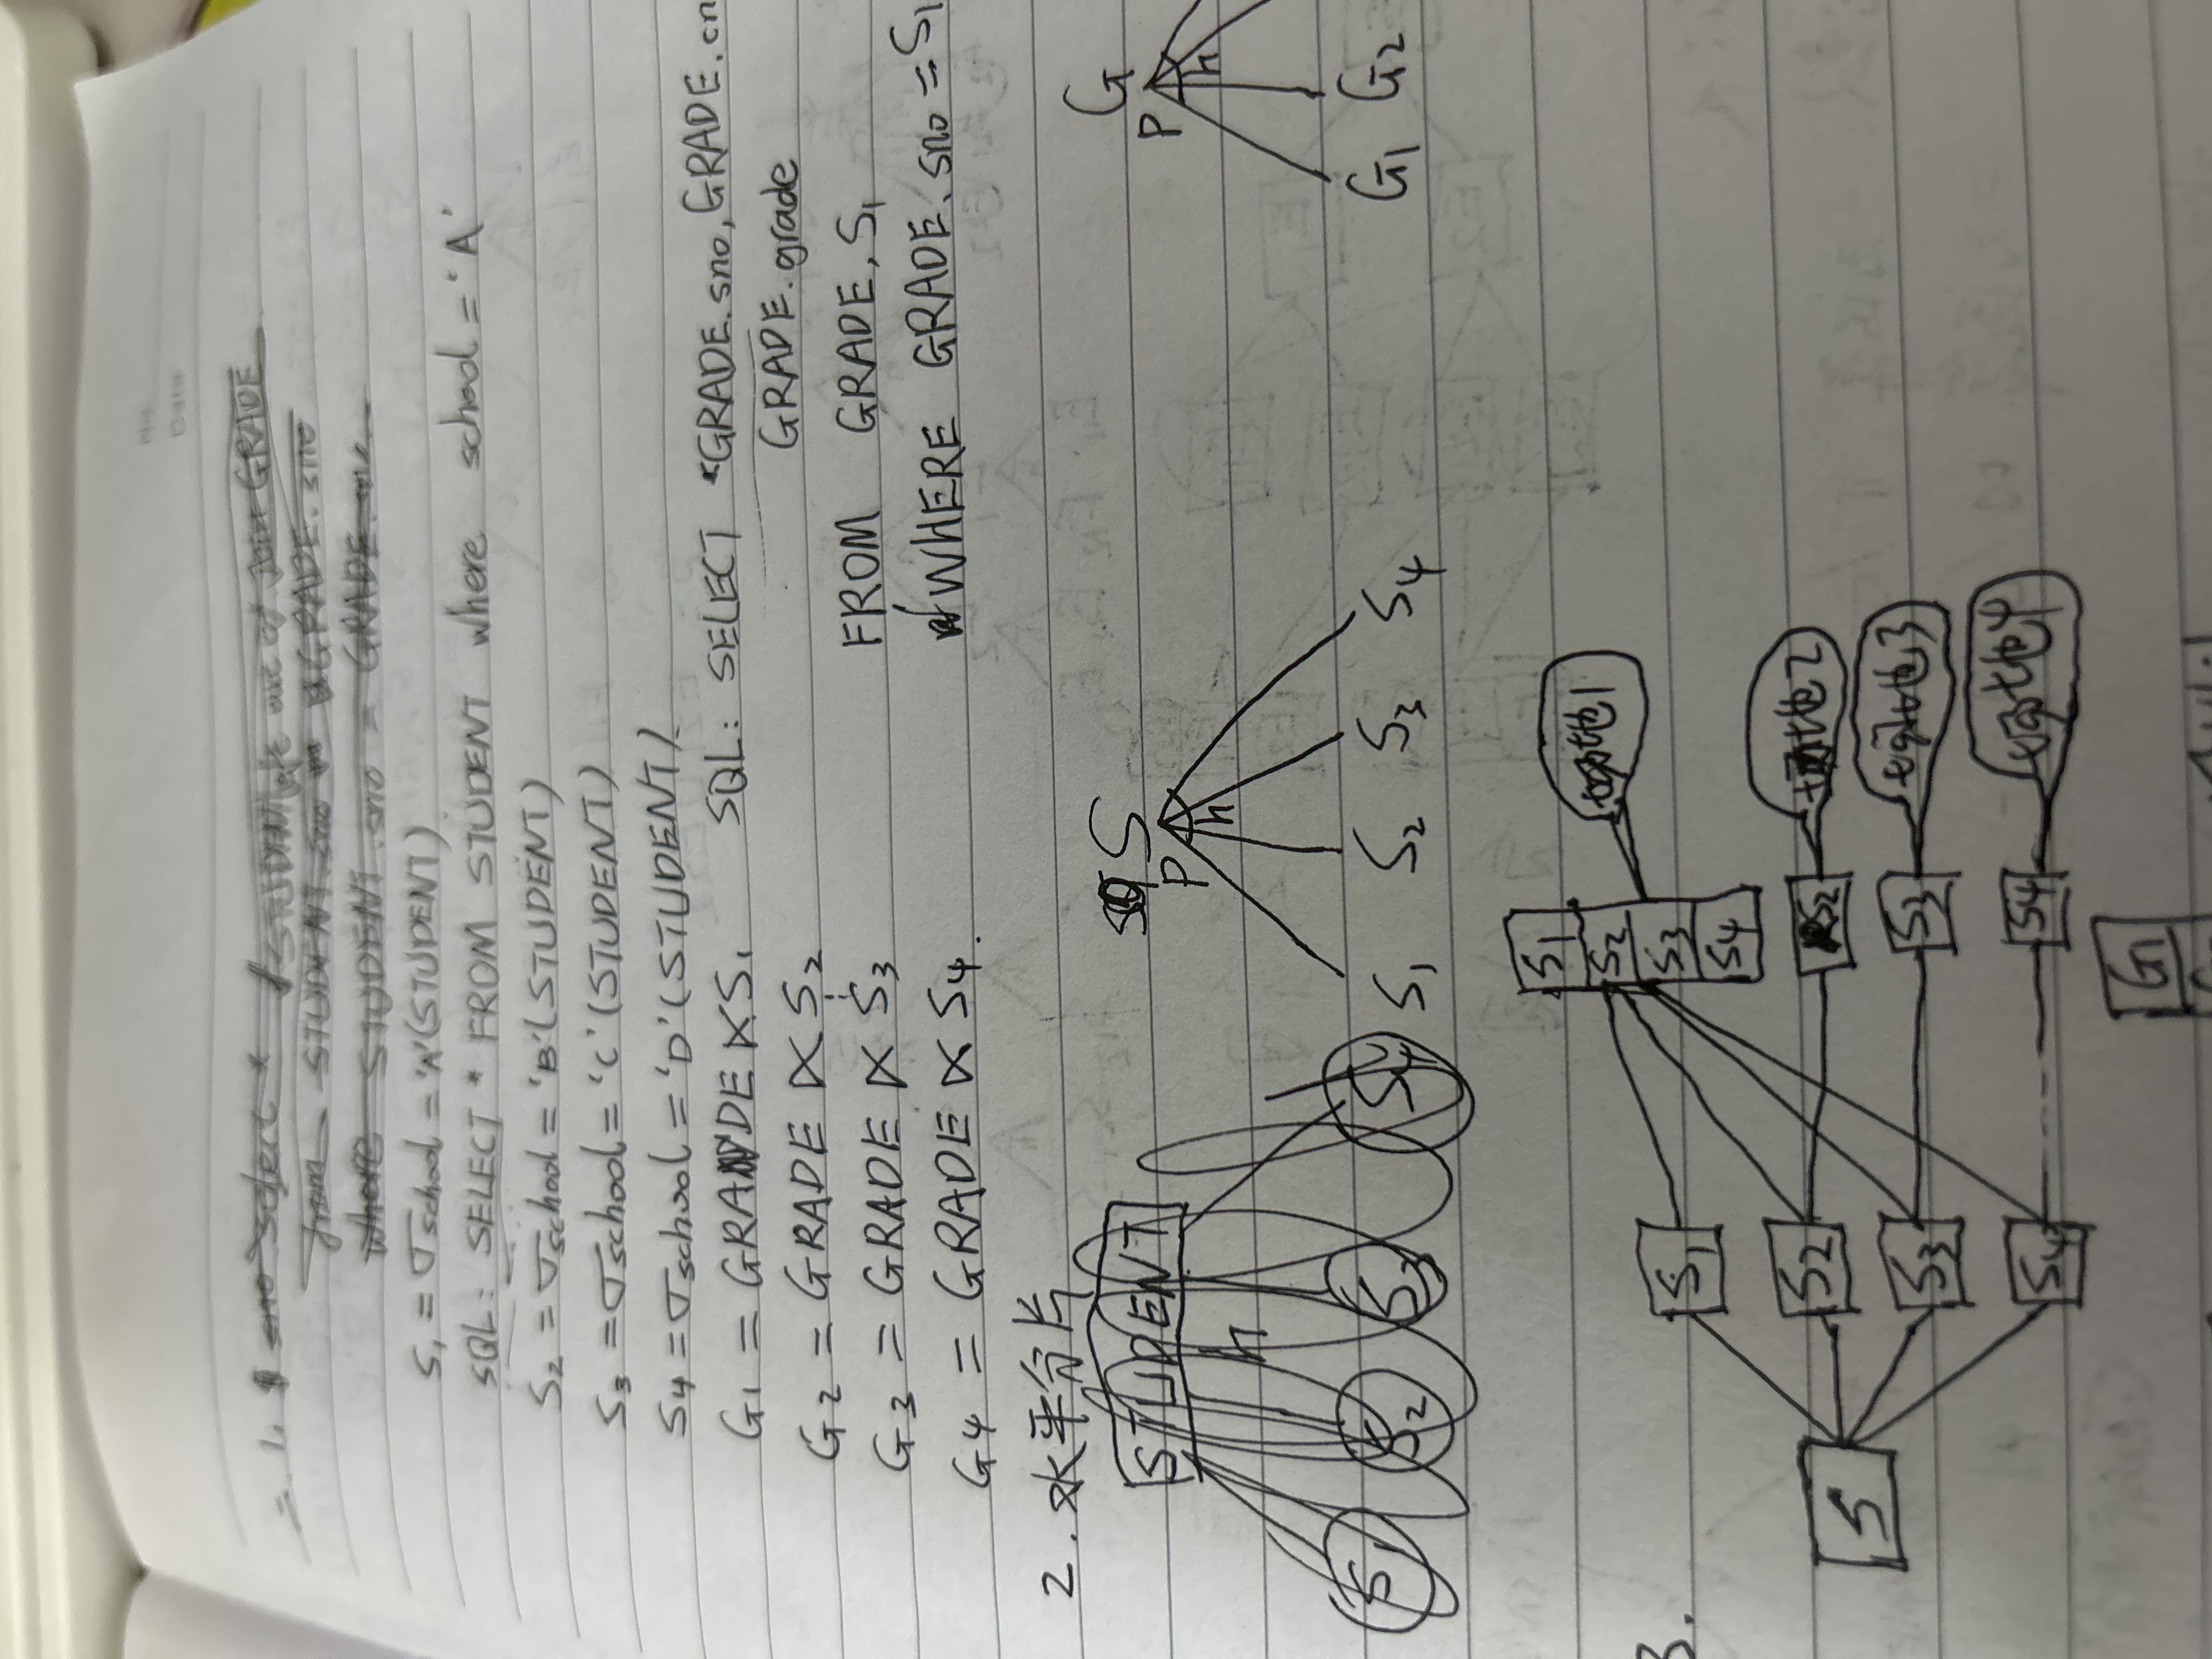 No.
Date
二、1.
S₁ = σschool = 'A'(STUDENT)
SQL: SELECT * FROM STUDENT where school = 'A'
S₂ = σschool = 'B'(STUDENT)
S₃ = σschool = 'C'(STUDENT)
S₄ = σschool = 'D'(STUDENT)
G₁ = GRADE ⋉ S₁ SQL: SELECT GRADE.sno, GRADE.cn
GRADE.grade
G₂ = GRADE ⋉ S₂
FROM GRADE, S₁
G₃ = GRADE ⋉ S₃
WHERE GRADE.sno = S₁
G₄ = GRADE ⋉ S₄.
2. 水平分片
STUDENT
h
S₁ S₂ S₃ S₄
S
P
h
S₁ S₂ S₃ S₄
G
P
h
G₁ G₂
3.
S
S₁
S₂
S₃
S₄
S1
S2
S3
S4
S2
S3
S4
场地1
场地2
场地3
场地4
G1